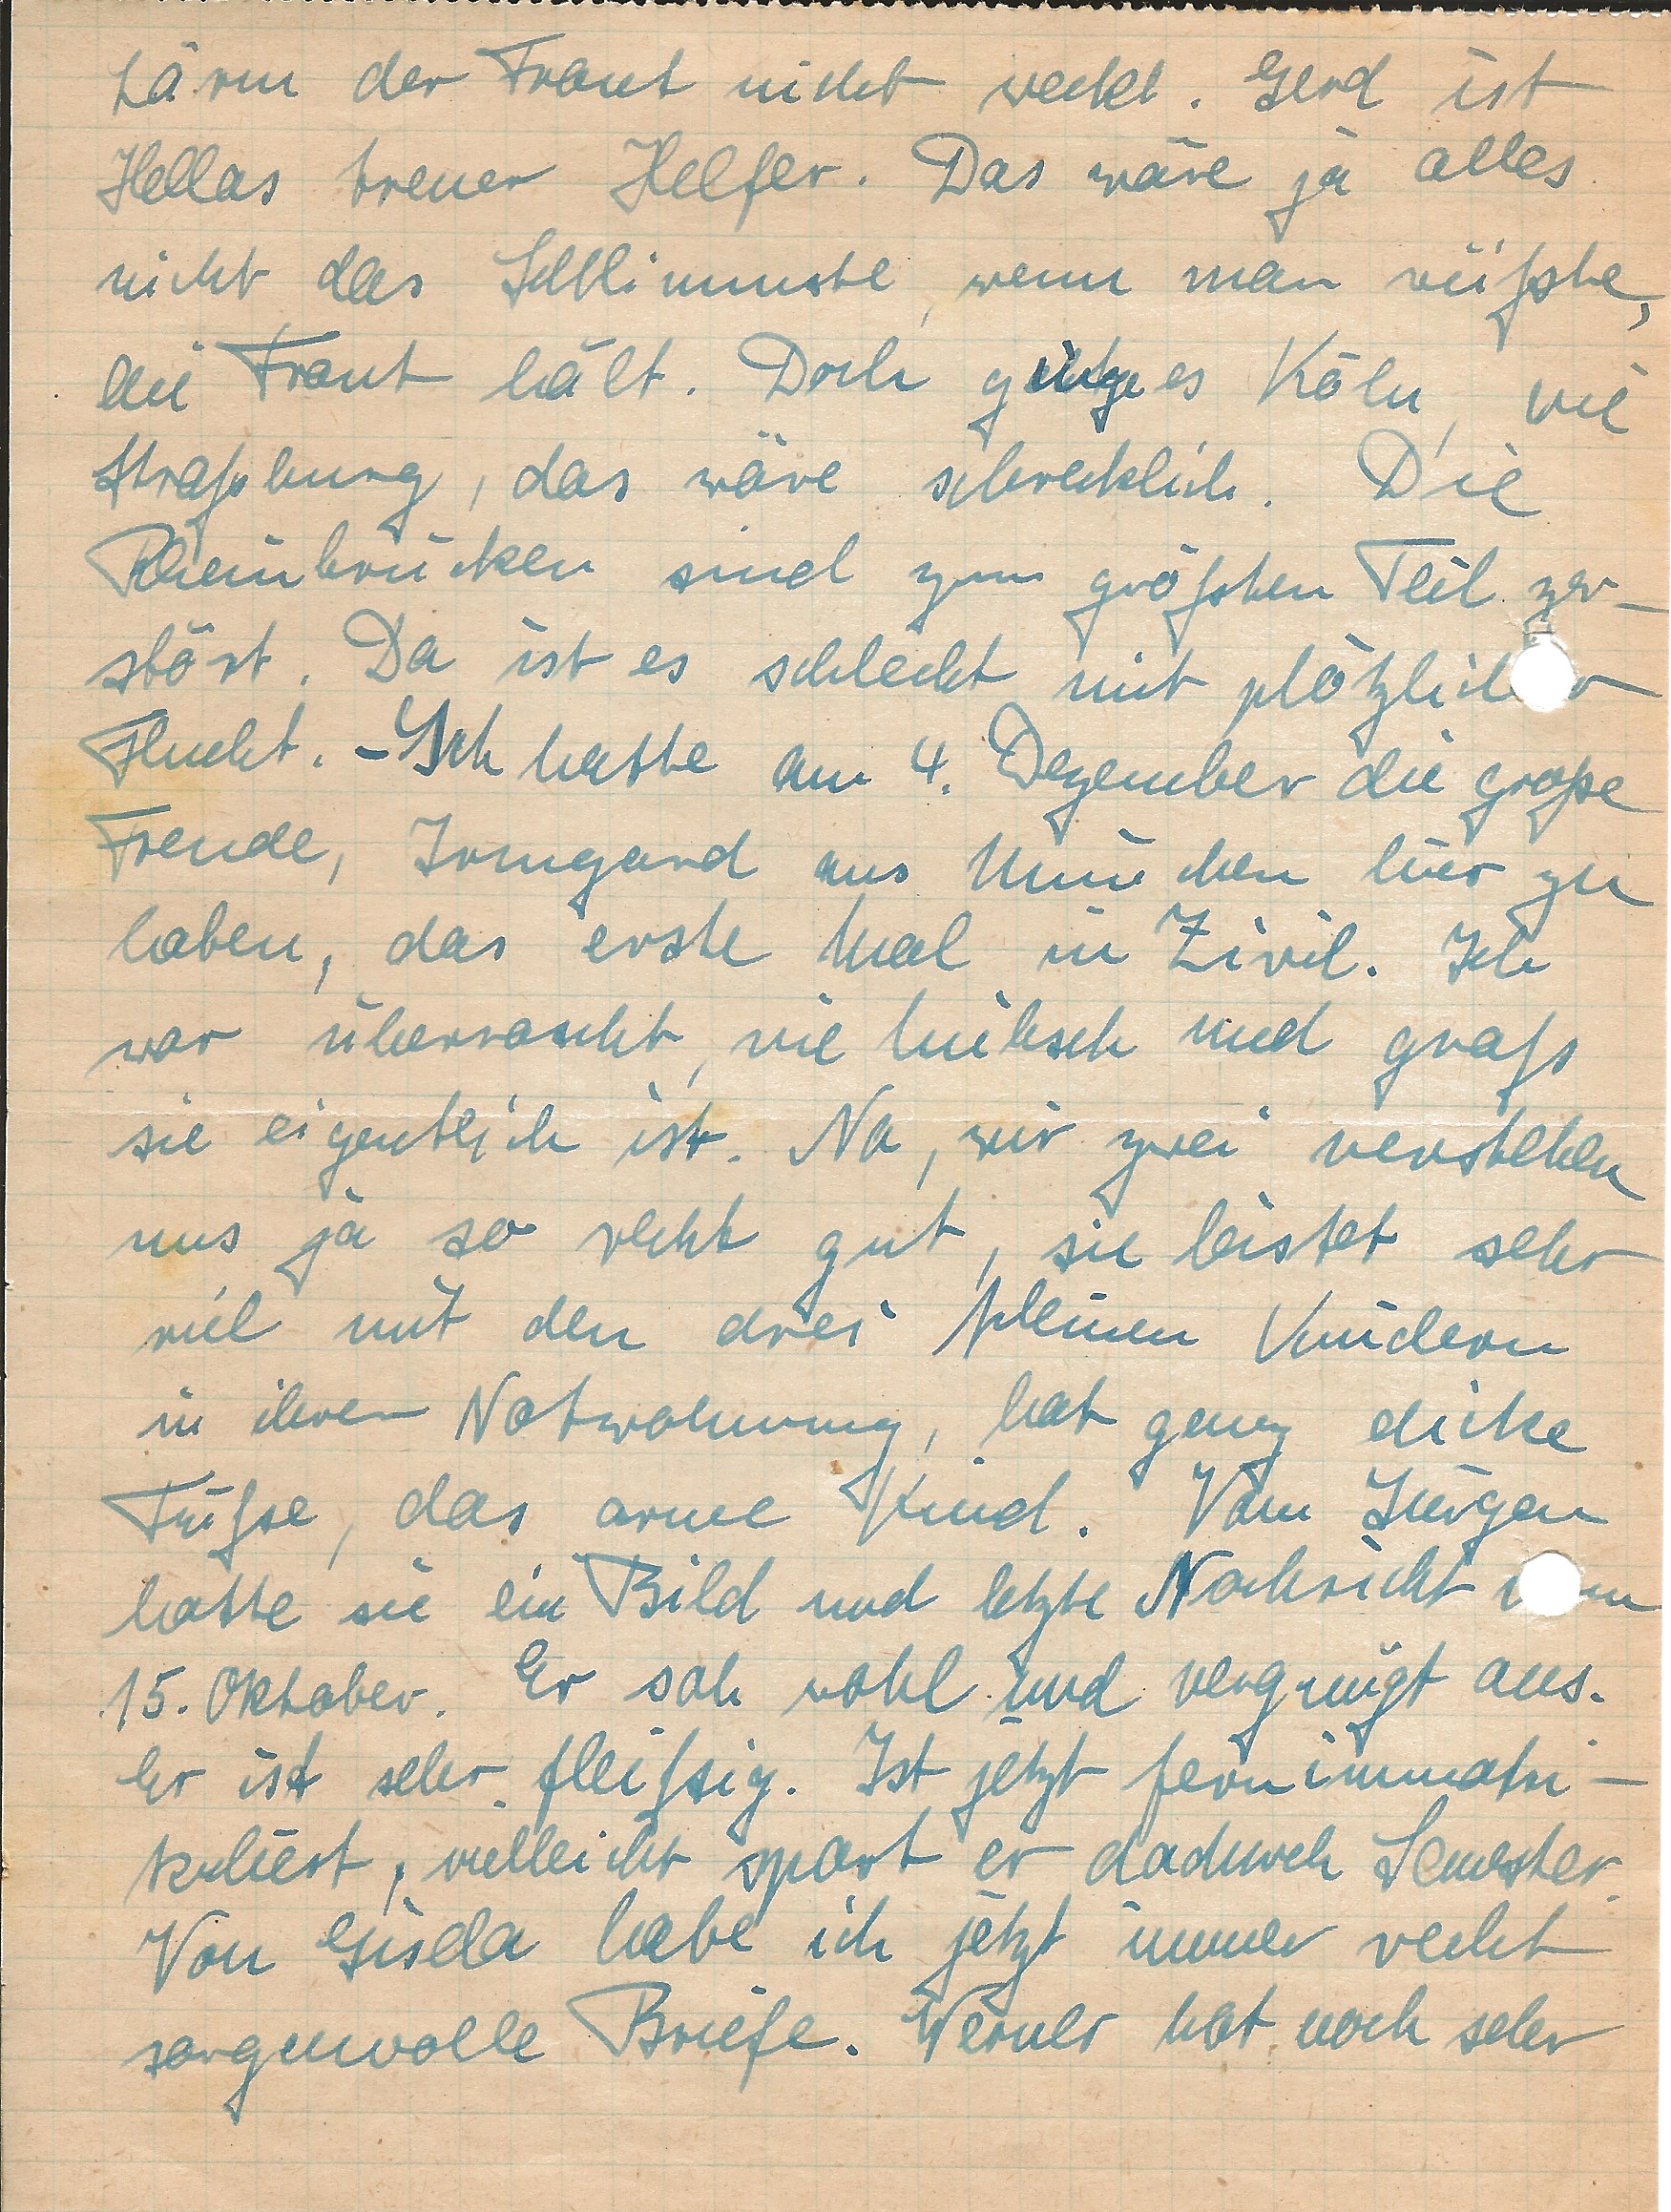 Lärm der Front nicht weckt. Gerd ist
Hellas treuer Helfer. Das wäre ja alles
nicht das Schlimmste, wenn man wüßte,
die Front hält. Doch ginge es Köln, wie
Straßburg, das wäre schrecklich. Die
Rheinbrücken sind zum größten Teil zer-
stört. Da ist es schlecht mit plötzlicher
Flucht. - Ich hatte am 4. Dezember die große
Freude, Irmgard aus München hier zu
haben, das erste Mal in Zivil. Ich
war überrascht, wie hübsch und groß
sie eigentlich ist. Na, wir zwei verstehen
uns ja so recht gut, sie leistet sehr
viel mit den drei kleinen Kindern
in ihrer Notwohnung, hat ganz dicke
Füße, das arme Kind. Vom Jürgen
hatte sie ein Bild und letzte Nachricht vom
15. Oktober. Er sah wohl und vergnügt aus.
Er ist sehr fleißig. Ist jetzt fernimmatri-
kuliert, vielleicht spart er dadurch Semester.
Von Gisela habe ich jetzt immer recht
sorgenvolle Briefe. Werner hat noch sehr